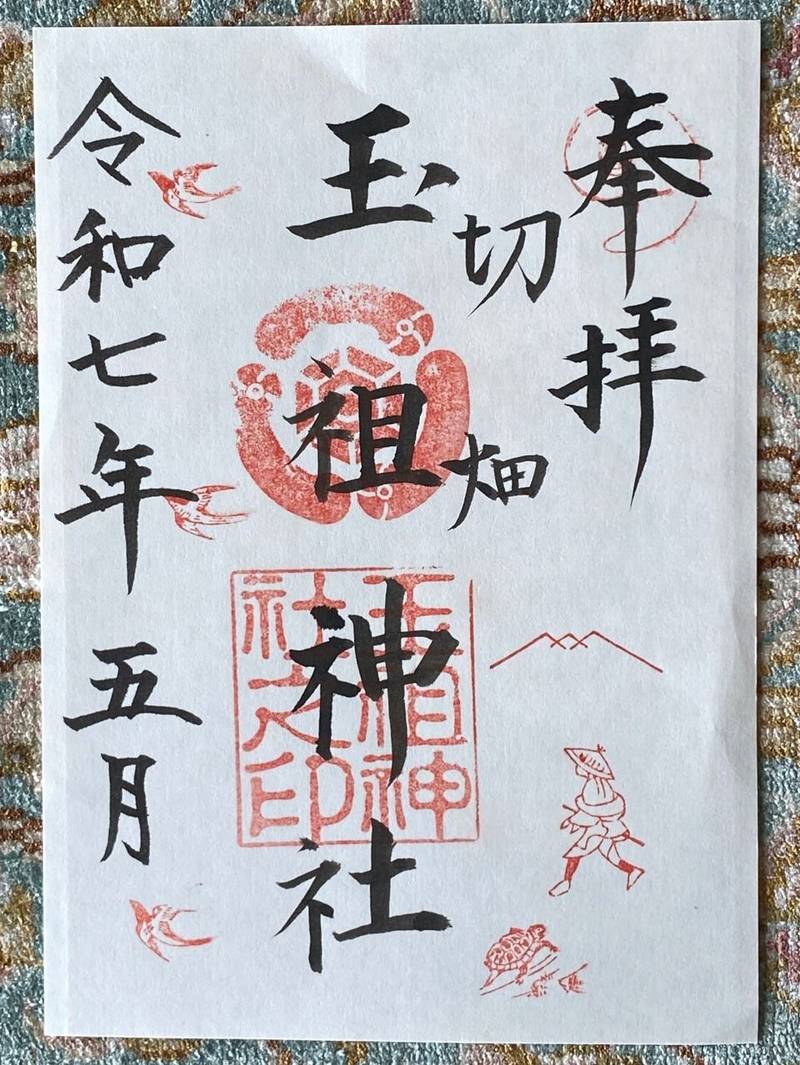 奉拝
切畑
玉祖神社
玉祖神
社之印
令和七年五月